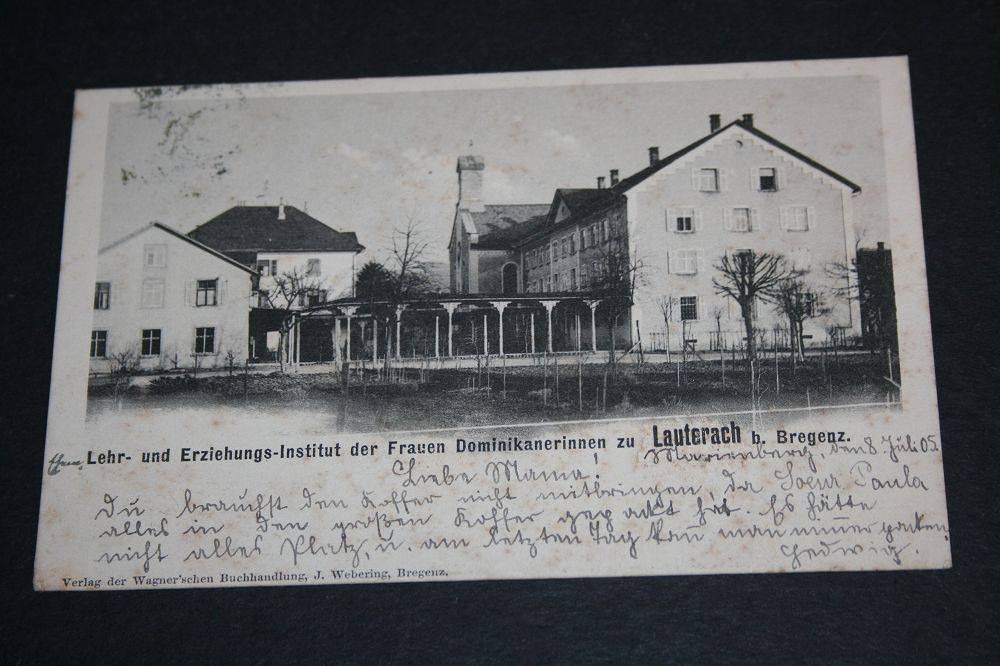 Lehr- und Erziehungs-Institut der Frauen Dominikanerinnen zu Lauterach b. Bregenz.
Marienberg, den 8 Juli 05.
Liebe Mama!
Du brauchst den Koffer nicht mitbringen, da Paula
alles in den großen Koffer gepackt hat. Es hätte
nicht alles Platz, u. am letzten Tag kañ man nim̄er packen.
Hedwig.
Verlag der Wagner'schen Buchhandlung, J. Webering, Bregenz.